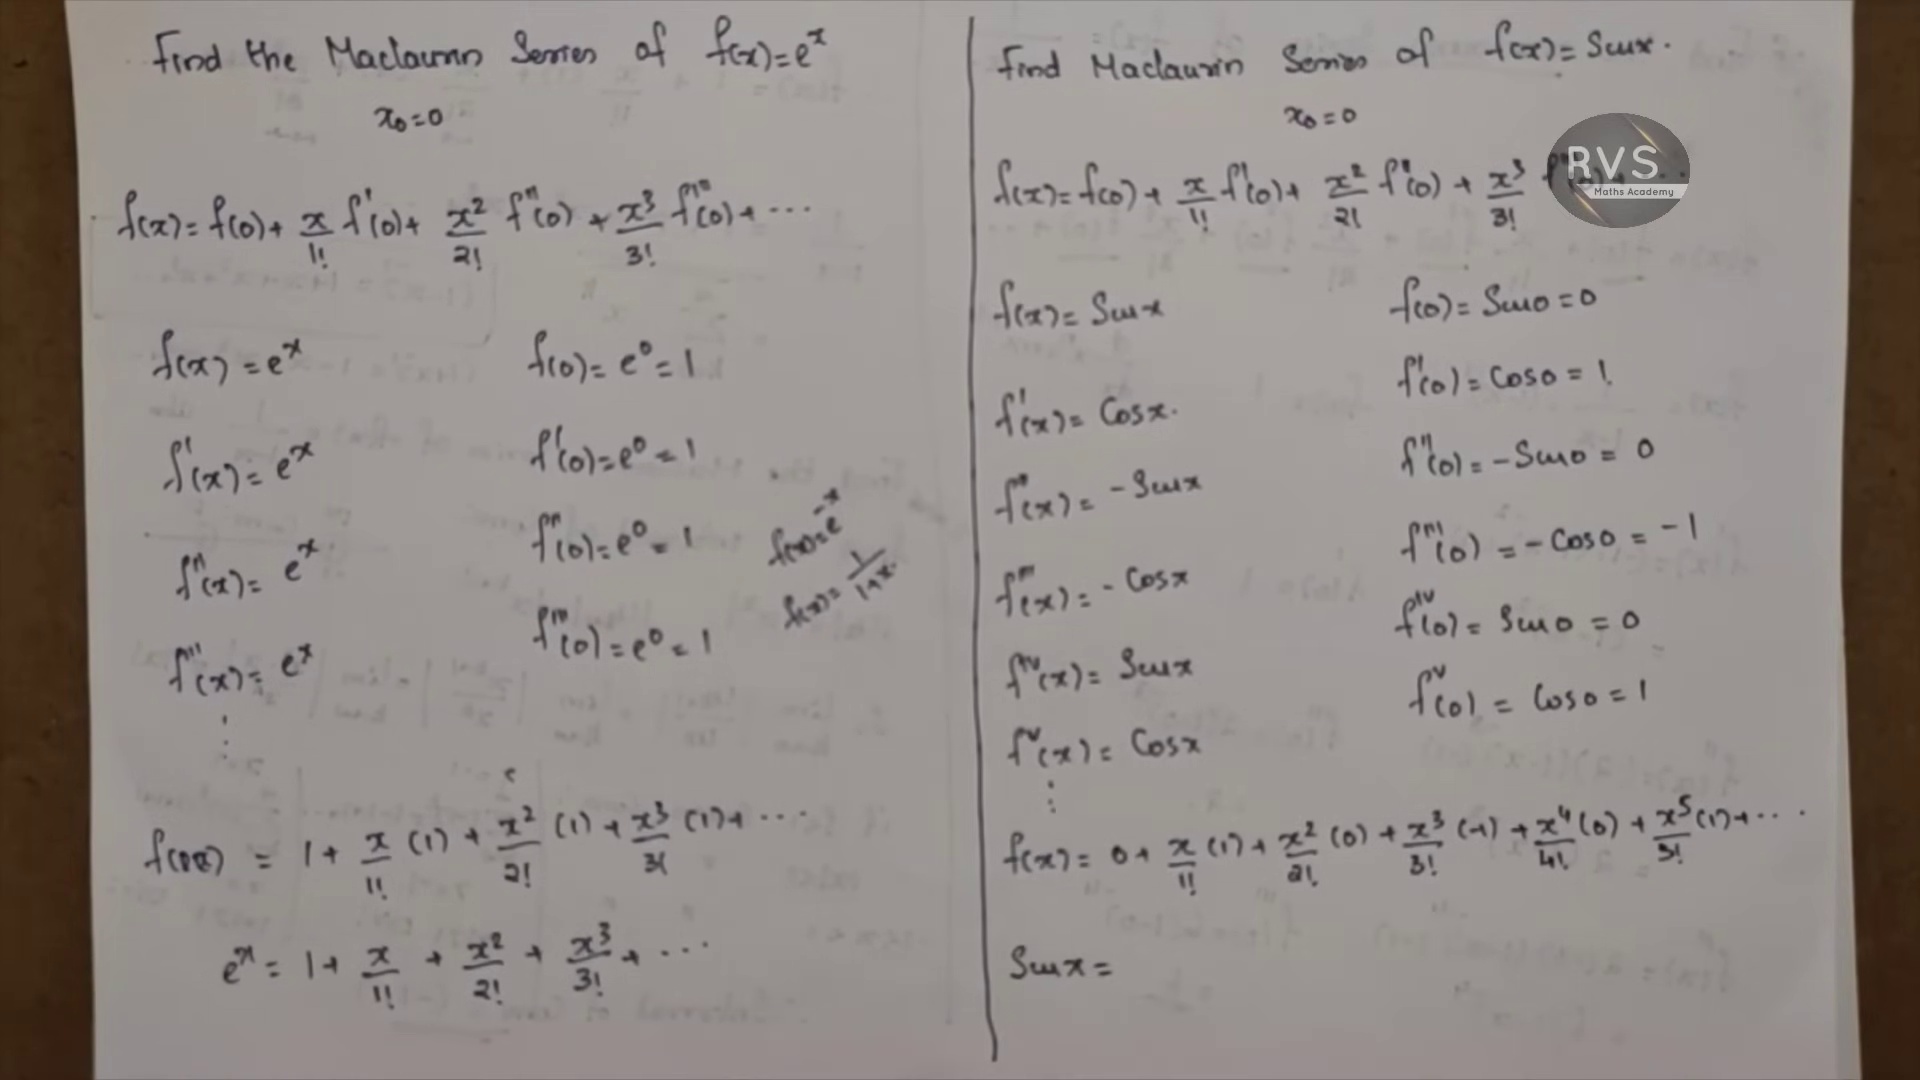 Find the Maclaurin Series of f(x)=eˣ
x₀=0
f(x)=f(0)+ x/1! f'(0)+ x²/2! f''(0) + x³/3! f'''(0)+ ...
f(x) = eˣ
f(0)= e⁰= 1
f'(x)= eˣ
f'(0)=e⁰=1
f''(x)= eˣ
f''(0)=e⁰=1
f'''(x)= eˣ
f'''(0)=e⁰=1
f(x)=e⁻ˣ
f(x)= 1/1+x.
⋮
= 1+ x/1! (1) + x²/2! (1) + x³/3! (1)+ ...
eˣ= 1+ x/1! + x²/2! + x³/3! + ...
Find Maclaurin Series of f(x)= Sinx.
x₀=0
f(x)=f(0)+ x/1! f'(0)+ x²/2! f''(0) + x³/3!
RVS
Maths Academy
f(x)= Sinx
f(0)= Sin0=0
f'(x)= Cosx.
f'(0)= Cos0=1.
f''(x)= -Sinx
f''(0)=-Sin0= 0
f'''(x)=-Cosx
f'''(0) =-Cos0= -1
fⁱᵛ(x)= Sinx
fⁱᵛ(0)= Sin0=0
fᵛ(x)= Cosx
fᵛ(0) = Cos0=1
⋮
f(x)= 0+ x/1! (1)+ x²/2! (0) + x³/3! (-1) + x⁴/4! (0) + x⁵/5! (1)+ ...
Sinx=